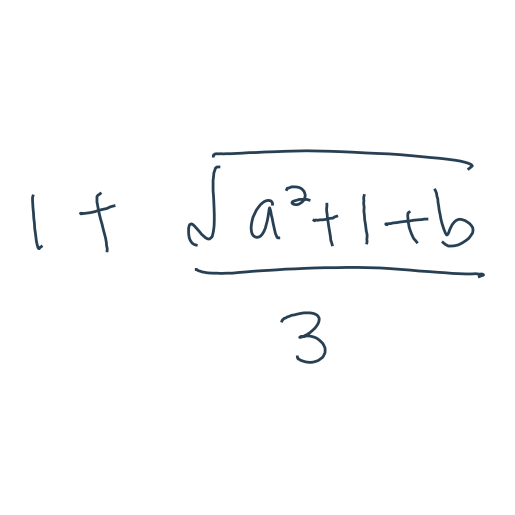 1 + √(a²+1+b) / 3